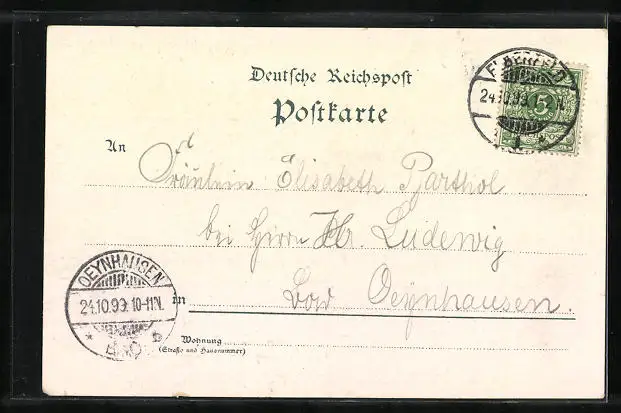 Deutsche Reichspost
Postkarte
24.10.99.
5
An Fräulein Elisabeth Barthol
bei Herrn Ludewig
OEYNHAUSEN
24.10.99. 10-11N.
BAD
in Bad Oeynhausen.
Wohnung
(Straße und Hausnummer)